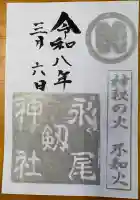 令和八年
三月六日
神秘の火 不知火
永尾
剱
神社